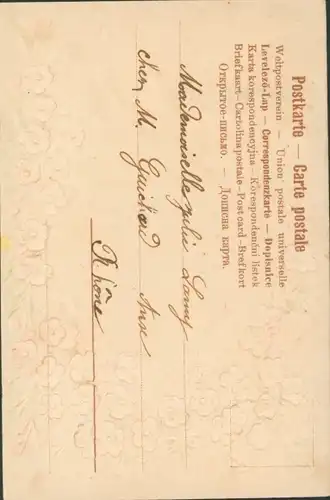 Postkarte — Carte postale
Weltpostverein — Union postale universelle
Levelező-Lap — Correspondenzkarte — Dopisnice
Karta korespondencyjna — Korespondenční lístek
Briefkaart — Cartolina postale — Post card — Brefkort
Открытое письмо. — Дописна карта.
Mademoiselle Julie Lamy
chez M. Guichard Anse
Rhône